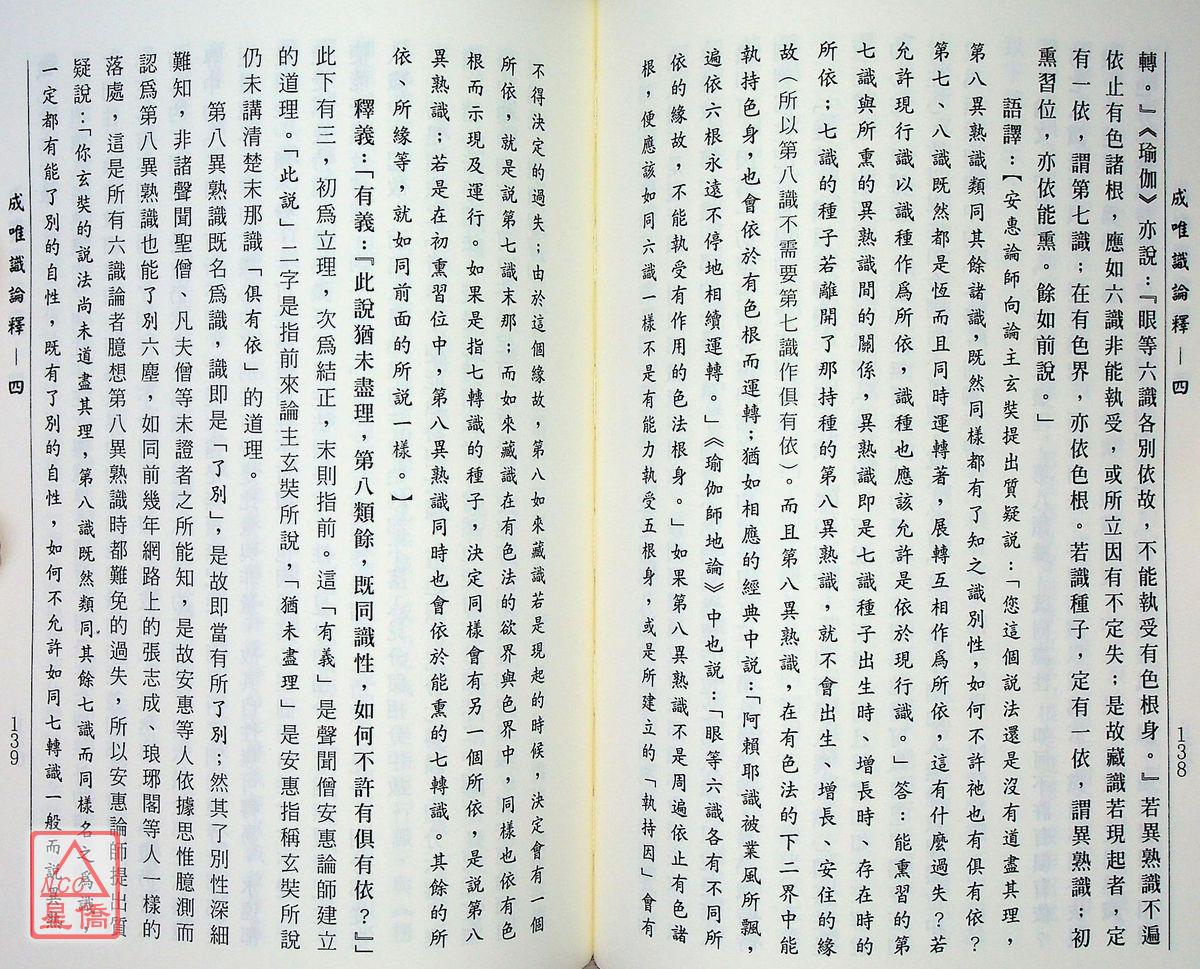 成唯識論釋—四
138
轉。』《瑜伽》亦說：『眼等六識各別依故，不能執受有色根身。』若異熟識不遍
依止有色諸根，應如六識非能執受，或所立因有不定失；是故藏識若現起者，定
有一依，謂第七識；在有色界，亦依色根。若識種子，定有一依，謂異熟識；初
熏習位，亦依能熏。餘如前說。」
語譯：【安惠論師向論主玄奘提出質疑說：「您這個說法還是沒有道盡其理，
第八異熟識類同其餘諸識，既然同樣都有了知之識別性，如何不許祂也有俱有依？
第七、八識既然都是恆而且同時運轉著，展轉互相作爲所依，這有什麼過失？若
允許現行識以識種作爲所依，識種也應該允許是依於現行識。」答：能熏習的第
七識與所熏的異熟識間的關係，異熟識即是七識種子出生時、增長時、存在時的
所依；七識的種子若離開了那持種的第八異熟識，就不會出生、增長、安住的緣
故（所以第八識不需要第七識作俱有依）。而且第八異熟識，在有色法的下二界中能
執持色身，也會依於有色根而運轉；猶如相應的經典中說：「阿賴耶識被業風所飄，
遍依六根永遠不停地相續運轉。」《瑜伽師地論》中也說：「眼等六識各有不同所
依的緣故，不能執受有作用的色法根身。」如果第八異熟識不是周遍依止有色諸
根，便應該如同六識一樣不是有能力執受五根身，或是所建立的「執持因」會有
不得決定的過失；由於這個緣故，第八如來藏識若是現起的時候，決定會有一個
所依，就是說第七識末那；而如來藏識在有色法的欲界與色界中，同樣也依有色
根而示現及運行。如果是指七轉識的種子，決定同樣會有另一個所依，是說第八
異熟識；若是在初熏習位中，第八異熟識同時也會依於能熏的七轉識。其餘的所
依、所緣等，就如同前面的所說一樣。】
釋義：「有義：『此說猶未盡理，第八類餘，既同識性，如何不許有俱有依？』」
此下有三，初爲立理，次爲結正，末則指前。這「有義」是聲聞僧安惠論師建立
的道理。「此說」二字是指前來論主玄奘所說，「猶未盡理」是安惠指稱玄奘所說
仍未講清楚末那識「俱有依」的道理。
第八異熟識既名爲識，識即是「了別」，是故即當有所了別；然其了別性深細
難知，非諸聲聞聖僧、凡夫僧等未證者之所能知，是故安惠等人依據思惟臆測而
認爲第八異熟識也能了別六塵，如同前幾年網路上的張志成、琅琊閣等人一樣的
落處，這是所有六識論者臆想第八異熟識時都難免的過失，所以安惠論師提出質
疑說：「你玄奘的說法尚未道盡其理，第八識既然類同其餘七識而同樣名之爲識，
一定都有能了別的自性，既有了別的自性，如何不允許如同七轉識一般而說異熟
成唯識論釋—四
139
NCC
星僑